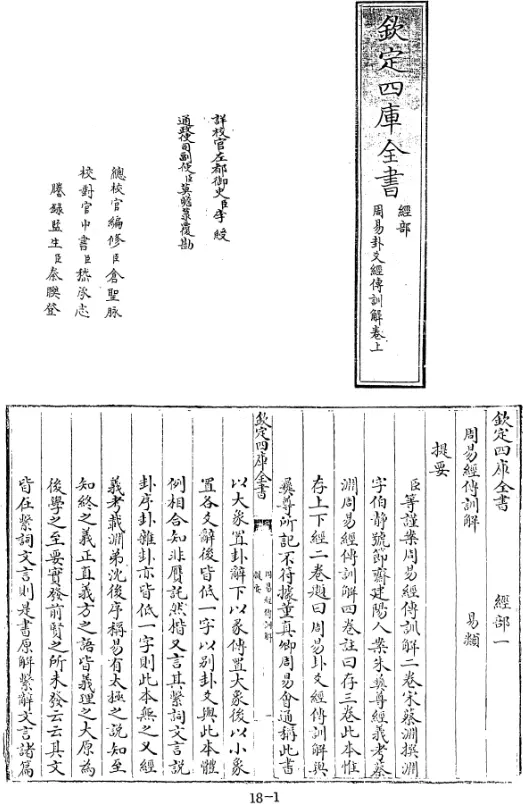 欽定四庫全書
經部
周易卦爻經傳訓解卷上
詳校官左都御史臣李綬
通政使司副使臣莫瞻菉覆勘
總校官編修臣倉聖脉
校對官中書臣嵇承志
謄錄監生臣秦聯登
欽定四庫全書 經部一
周易經傳訓解 易類
提要
臣等謹案周易經傳訓解二卷宋蔡淵撰淵
字伯靜號節齋建陽人案朱彝尊經義考蔡
淵周易經傳訓解四卷註曰存三卷此本惟
存上下經二卷題曰周易卦爻經傳訓解與
彝尊所記不符據董真卿周易會通稱此書
欽定四庫全書
周易經傳訓解
提要
一
以大象置卦辭下以彖傳置大象後以小象
置各爻辭後皆低一字以別卦爻與此本體
例相合知非贋託然楷又言其繫詞文言說
卦序卦雜卦亦皆低一字則此本無之又經
義考載淵弟沈後序稱易有太極之說知至
知終之義正直義方之語皆義理之大原為
後學之至要實發前賢之所未發云云其文
皆在繫詞文言則是書原解繫辭文言諸篇
18-1